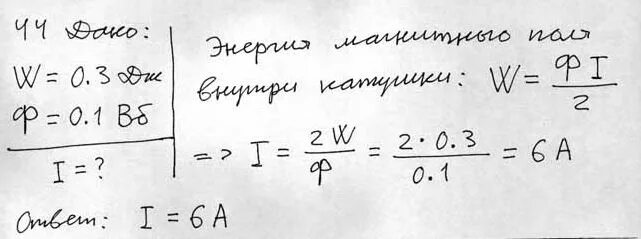 44 Дано:
W = 0.3 Дж
Ф = 0.1 Вб
I = ?
Энергия магнитного поля
внутри катушки: W = ФI / 2
=> I = 2W / Ф = 2 · 0.3 / 0.1 = 6 А
Ответ: I = 6 А